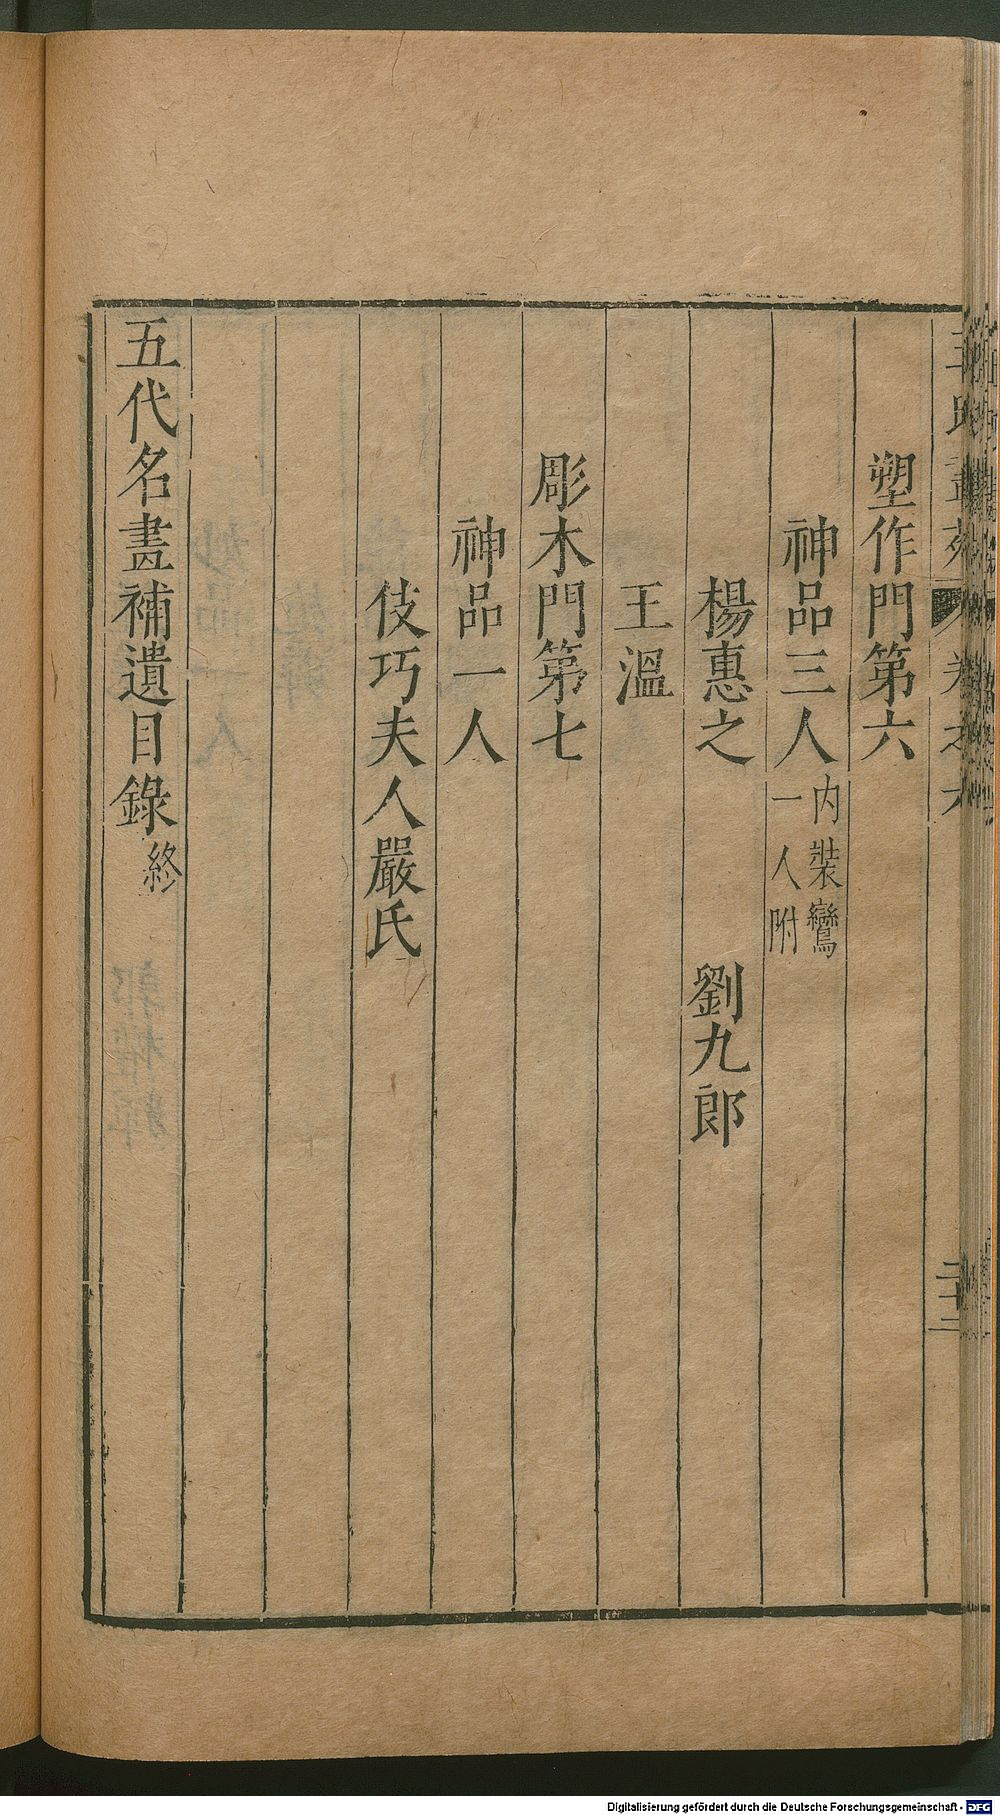 塑作門第六
神品三人 內裝鸞一人附
楊惠之 劉九郎
王溫
彫木門第七
神品一人
伎巧夫人嚴氏
五代名畫補遺目錄終
Digitalisierung gefördert durch die Deutsche Forschungsgemeinschaft - DFG